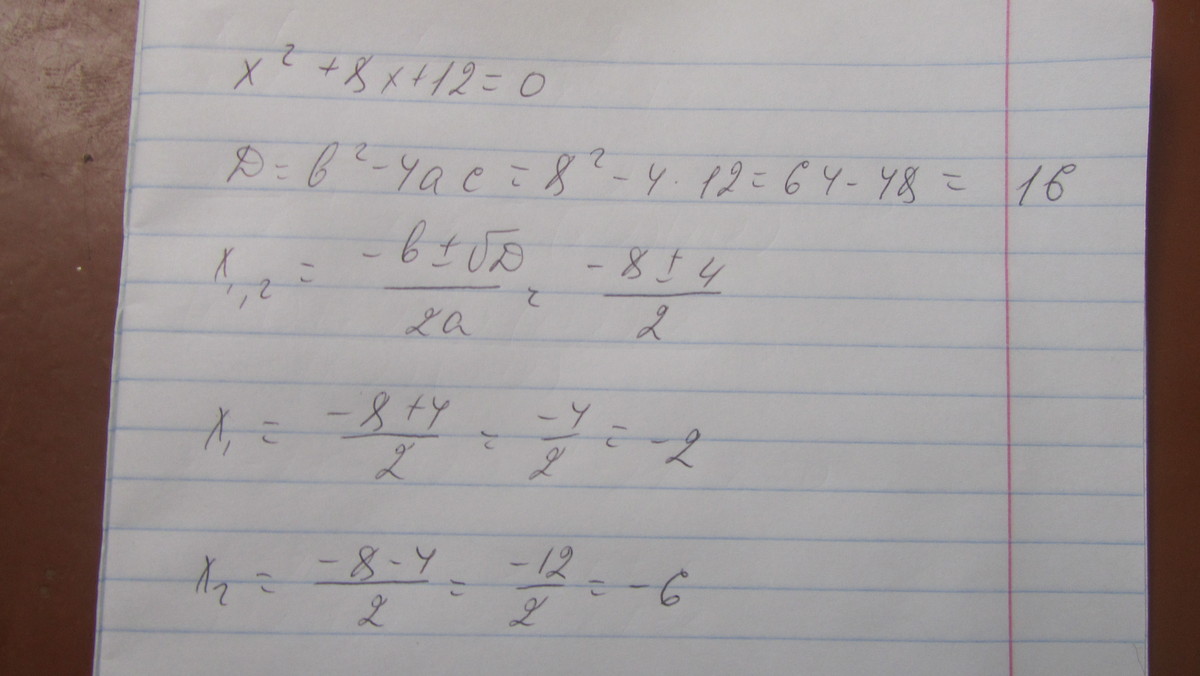 x² + 8x + 12 = 0
D = b² - 4ac = 8² - 4 · 12 = 64 - 48 = 16
x₁,₂ = (-b ± √D)/(2a) = (-8 ± 4)/2
x₁ = (-8 + 4)/2 = -4/2 = -2
x₂ = (-8 - 4)/2 = -12/2 = -6